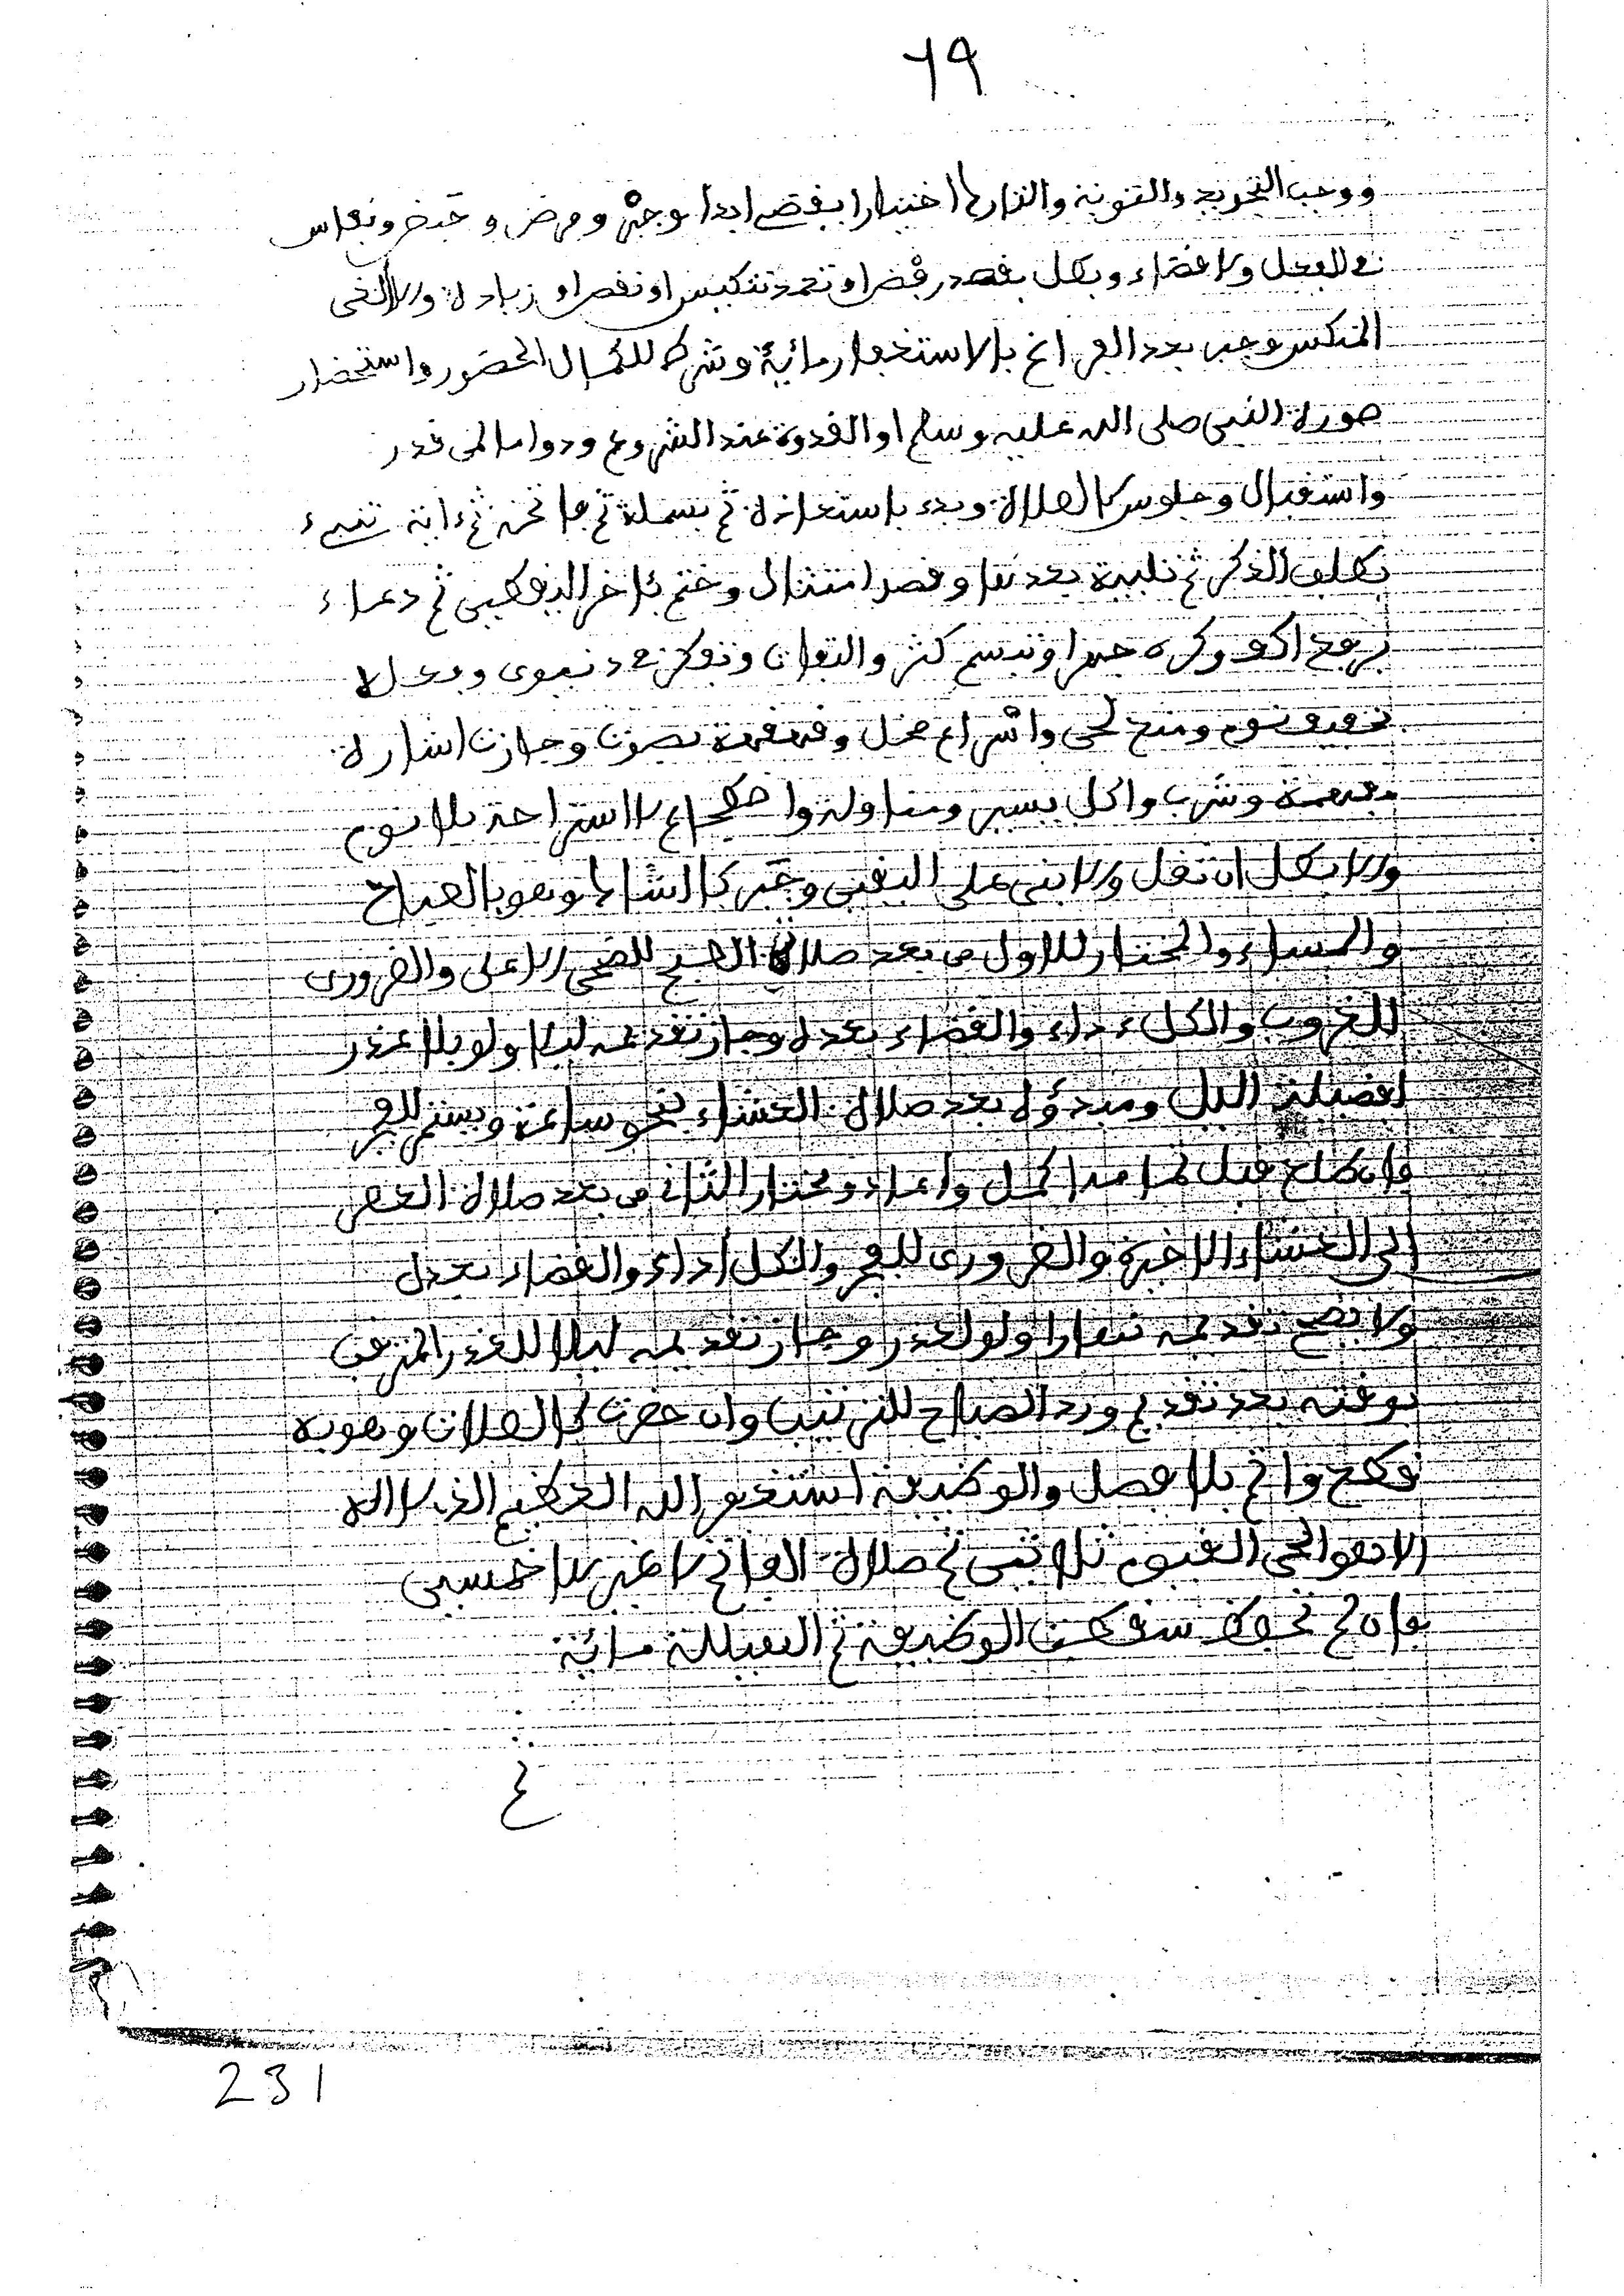 ٦٩
ووجب التجديد والتوبة والتارك اختيارا يقضے ابدا وخير ومرض وحيض ونفاس
في الفعل ولا قضاء وبطل بقصد رفض او تعمد تنكيس او نقص او زيادة والا الغى
المنكس وجبر بعد الفراغ بالاستغفار مائية وشرط للكمال الحضور واستحضار
صورة النبي صلى الله عليه وسلم او القدوة عند الشروع ودواما لمن قدر
واستقبال وجلوس كالصلاة وبدء باستعاذة ثم بسملة ثم فاتحة ثم ءاية تنبيء
بطلب الذكر ثم تلبية بعدها وقصد امتثال وختم بئاخر اليقطين ثم دعاء
برفع اكف وكره جهرا وتبسم كثر والتفات وتفكر في دنيوى وفعله
خفيف نوم ومنع لحن واسراع مخل وقهقهة بصوت وجازت اشارة
مفهمة وشرب واكل يسير ومناولة واضطجاع لاستراحة بلا نوم
ولا بطل ان ثقل ولا ابنى على اليقين وجبر كالشاك وهو بالصباح
والمساء والمختار للاول من بعد صلاة الصبح للضحى الاعلى والضرورى
للغروب والكل ءداء والقضاء بعده وجاز تقديمه ليلا ولو بلا عذر
لفضيلة اليل ومبدؤه بعد صلاة العشاء بنحو ساعة ويستمر للفجر
فان طلع قبل تمامه اكمل واعاد ومختار الثانى من بعد صلاة العصر
الى العشاء الاخيرة والضرورى للفجر والكل أداء والقضاء بعده
ولا يصح تقديمه نهارا ولو لعذر وجاز تقديمه ليلا للعذر المترقب
بوقته بعد تقديم ورد الصباح للترتيب وان حضرت كالصلاة وهو به
قطع واتم بلا فصل والوظيفة استغفر الله العظيم الذي لا اله
الا هو الحي القيوم ثلاثين ثم صلاة الفاتح لا غيرها خمسين
فان لم تحفظ سقطت الوظيفة ثم الهيللة مائية
ثم
231